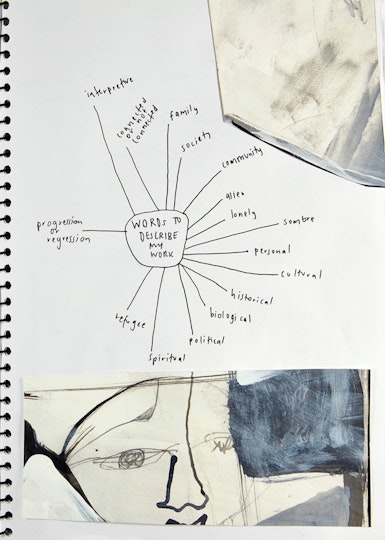 interpretive
connected
or not
connected
family
society
community
alien
lonely
sombre
personal
cultural
historical
biological
political
spiritual
refugee
progression
or
regression
WORDS TO
DESCRIBE
MY
WORK